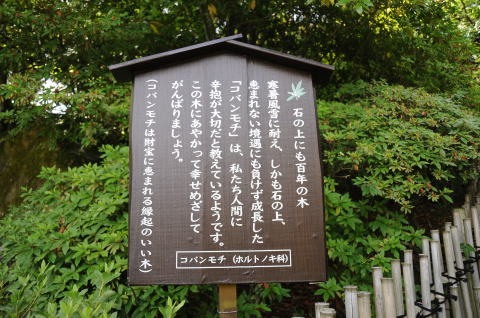 石の上にも百年の木
寒暑風雪に耐え、しかも石の上、
恵まれない境遇にも負けず成長した
「コバンモチ」は、私たち人間に
辛抱が大切だと教えているようです。
この木にあやかって幸せめざして
がんばりましょう。
(コバンモチは財宝に恵まれる縁起のいい木)
コバンモチ (ホルトノキ科)